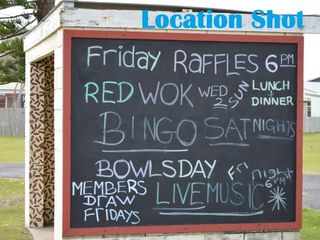 Location Shot
Friday RAFFLES 6PM
RED WOK WED 2 SUN LUNCH + DINNER
BINGO SAT NIGHTS
BOWLSDAY Fri night 6PM
MEMBERS DRAW FRIDAYS
LIVE MUSIC